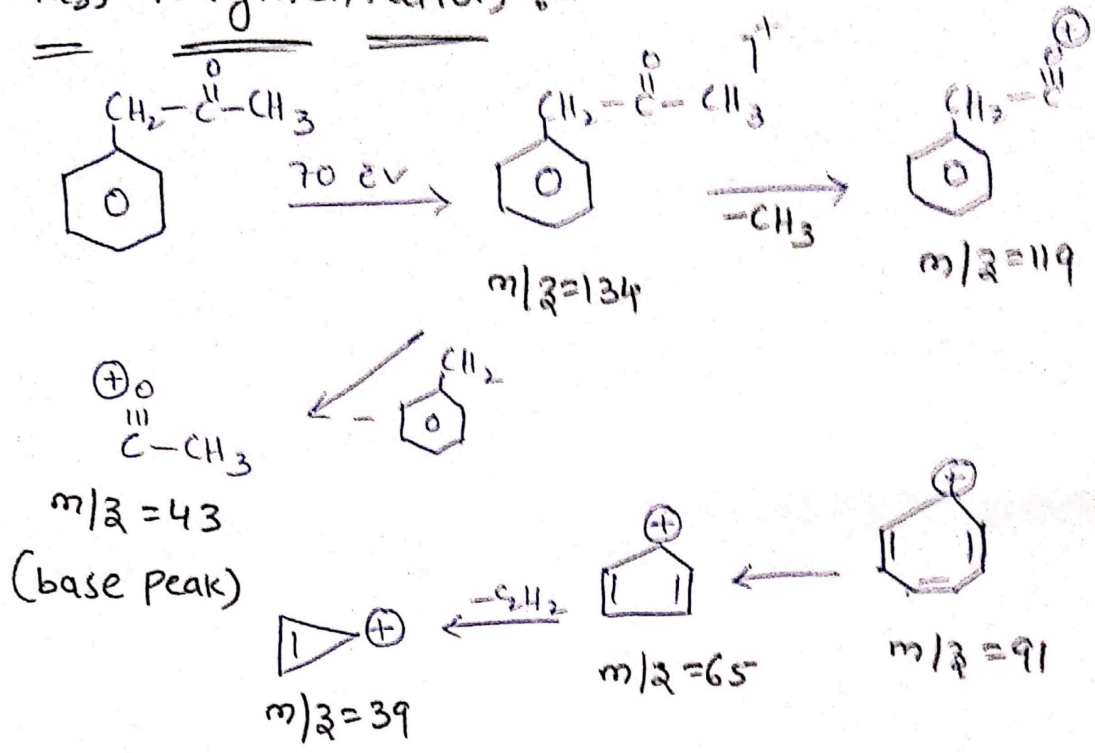 CH₂-C-CH₃
O
70 ev
CH₂-C-CH₃
O
m/z=134
-CH₃
CH₂-C
O
m/z=119
O
C-CH₃
m/z=43
(base peak)
- CH₂
m/z=91
m/z=65
-C₂H₂
m/z=39